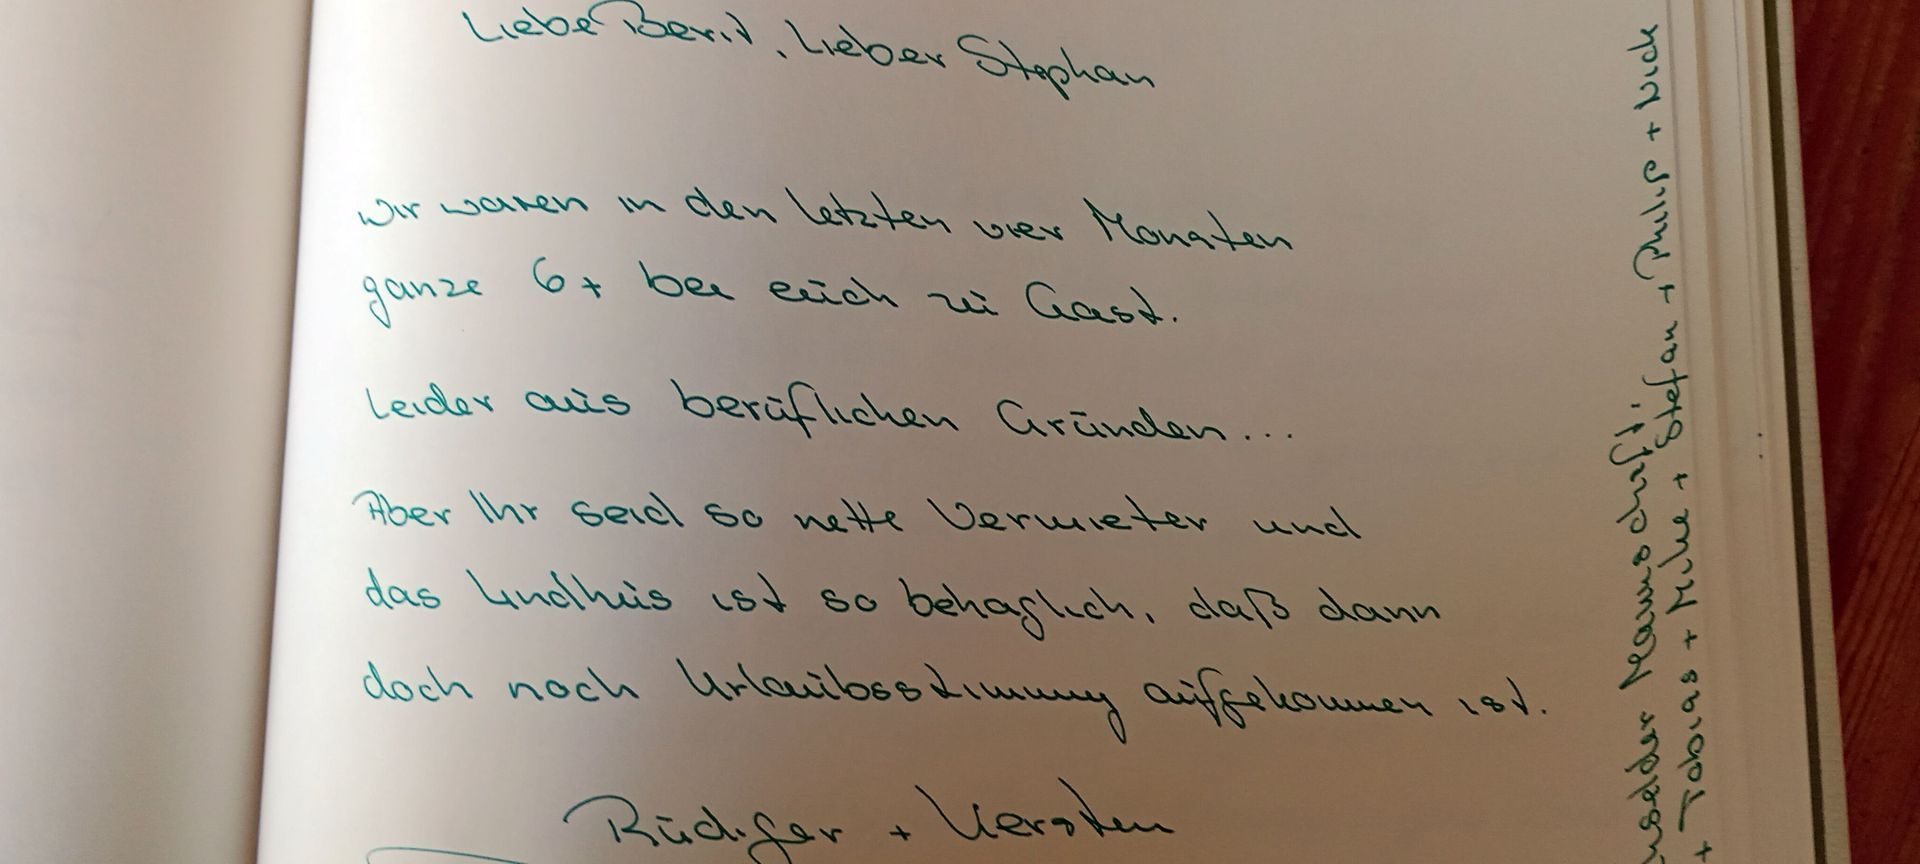 Liebe Berit, Lieber Stephan
wir waren in den letzten vier Monaten
ganze 6x bei euch zu Gast.
Leider aus beruflichen Gründen...
Aber Ihr seid so nette Vermieter und
das Lindhus ist so behaglich, daß dann
doch noch Urlaubsstimmung aufgekommen ist.
Rüdiger + Kersten
Mannschaft:
+ Tobias + Mike + Stefan + Philip + Nick